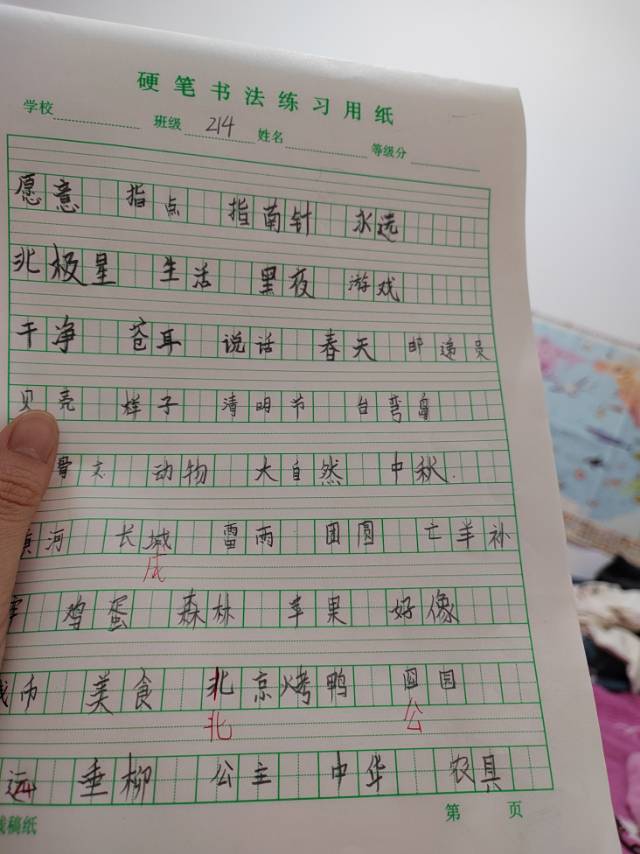 硬笔书法练习用纸
学校 班级 214 姓名 等级分
愿意 指点 指南针 永远
北极星 生活 黑夜 游戏
干净 苍耳 说话 春天 邮递员
贝壳 样子 清明节 台弯岛
骨文 动物 大自然 中秋
河 长城 雷雨 团圆 亡羊补
成
鸡蛋 森林 苹果 好像
币 美食 北京烤鸭 园
北 公
远 垂柳 公主 中华 农具
稿纸 第 页